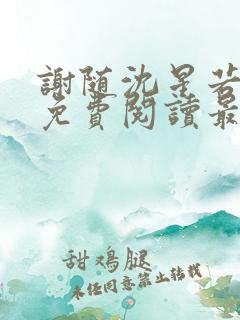 謝随沈星若
免費閱讀最
甜鸡腿
未经同意禁止转载